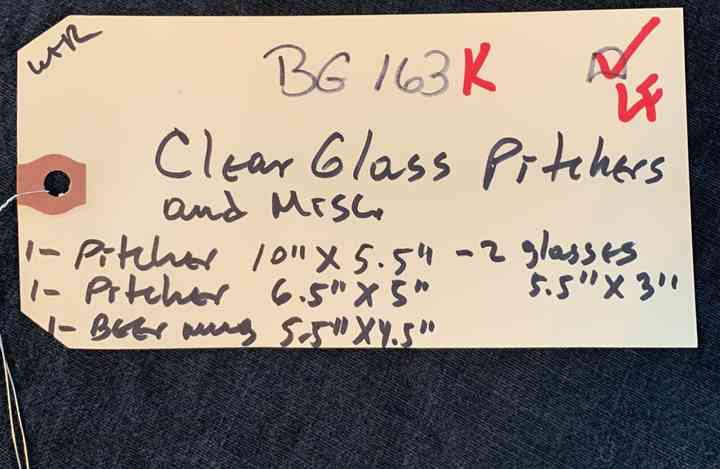 WTR
BG 163K
LF
Clear Glass Pitchers
and Misc.
1- Pitcher 10" X 5.5" - 2 glasses
1- Pitcher 6.5" X 5" 5.5" X 3"
1- BEEr mug 5.5" X 4.5"